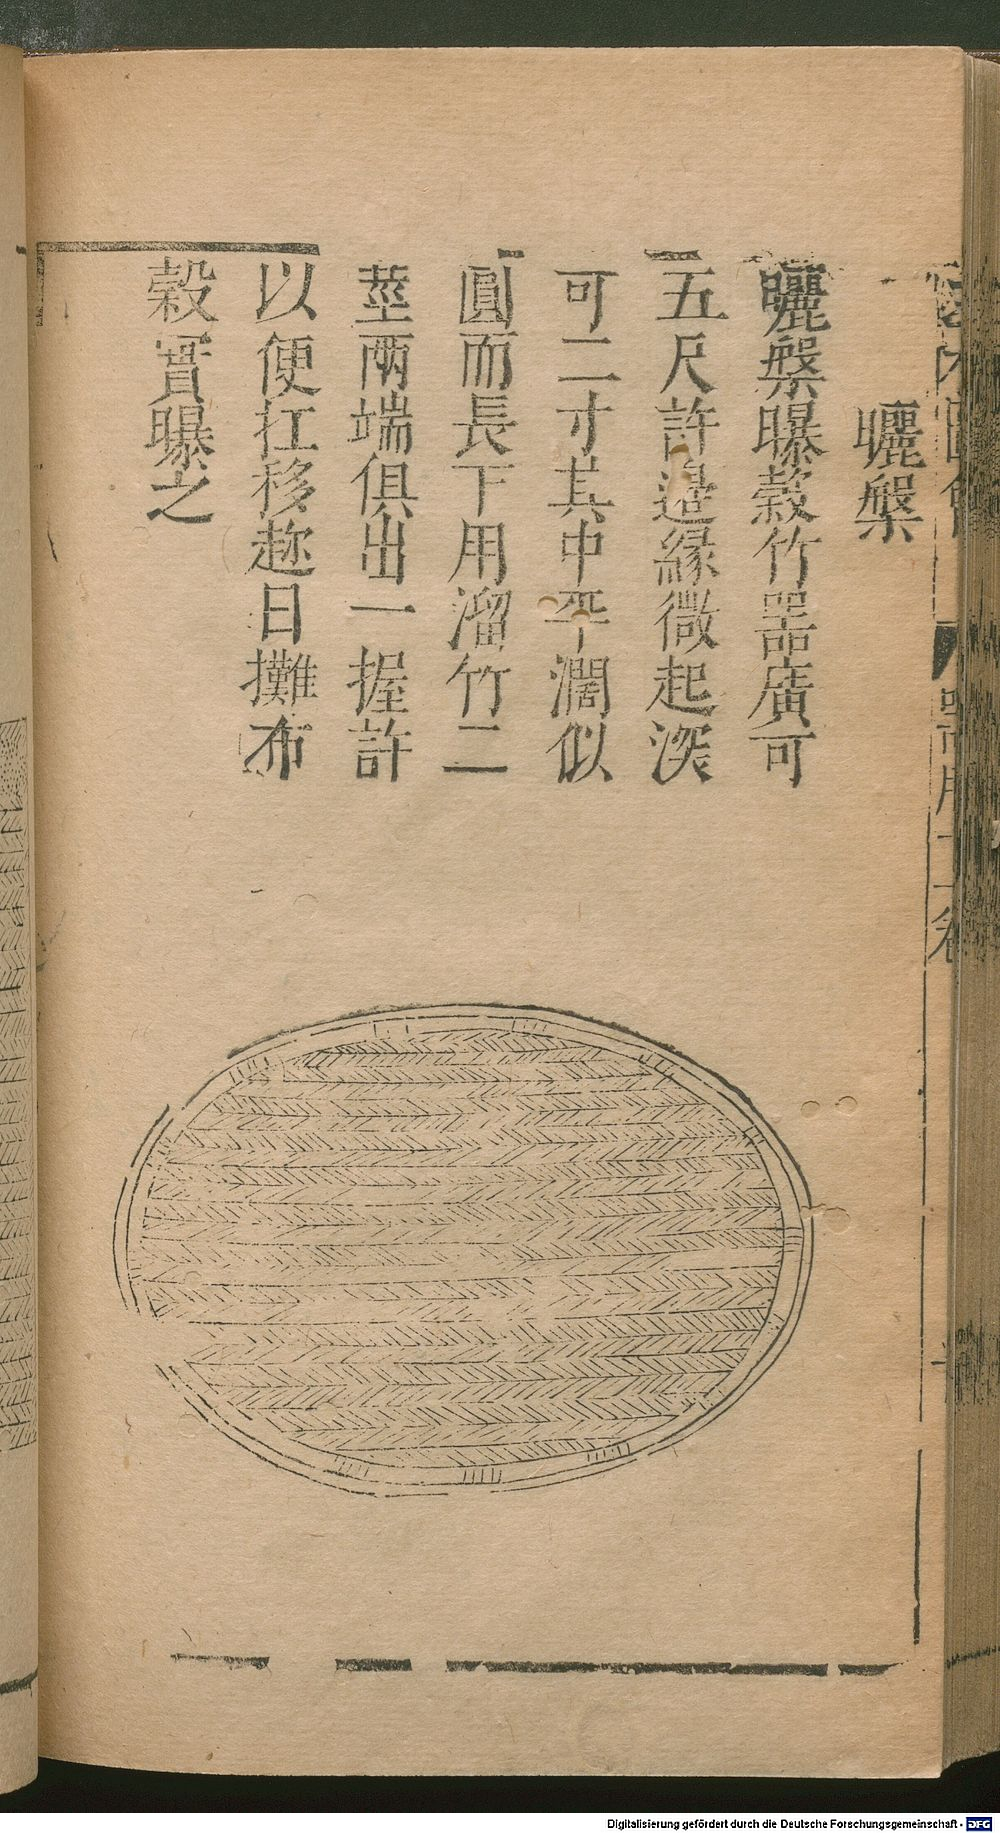 曬槃
曬槃曝穀竹器廣可
五尺許邉緣微起深
可二寸其中平濶似
圓而長下用溜竹二
莖兩端俱出一握許
以便扛移趂日攤布
穀實曝之
Digitalisierung gefördert durch die Deutsche Forschungsgemeinschaft - DFG